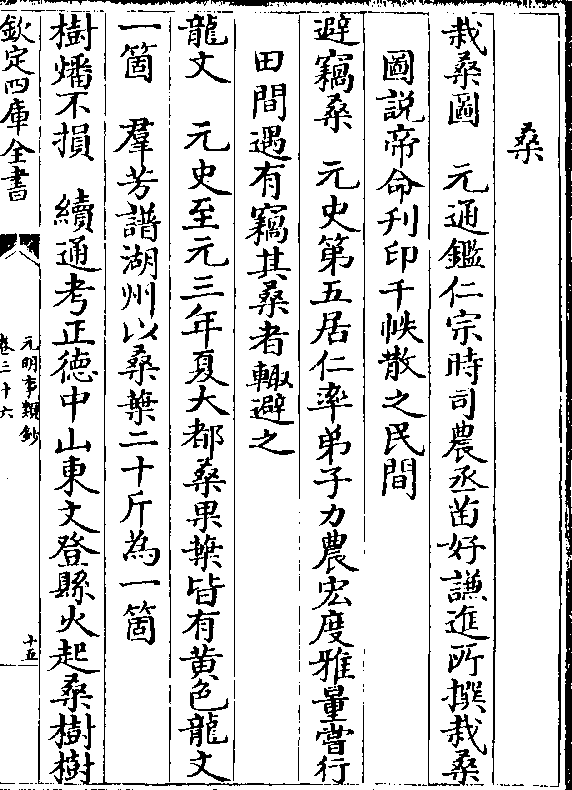 桑
栽桑圖　元通鑑仁宗時司農丞苗好謙進所撰栽桑
圖説帝命刋印千帙散之民間
避竊桑　元史第五居仁率弟子力農宏度雅量嘗行
田間遇有竊其桑者輙避之
龍文　元史至元三年夏大都桑果葉皆有黄色龍文
一箇　羣芳譜湖州以桑葉二十斤為一箇
樹燔不損　續通考正德中山東文登縣火起桑樹樹
欽定四庫全書
元明事類鈔
卷三十六
十五